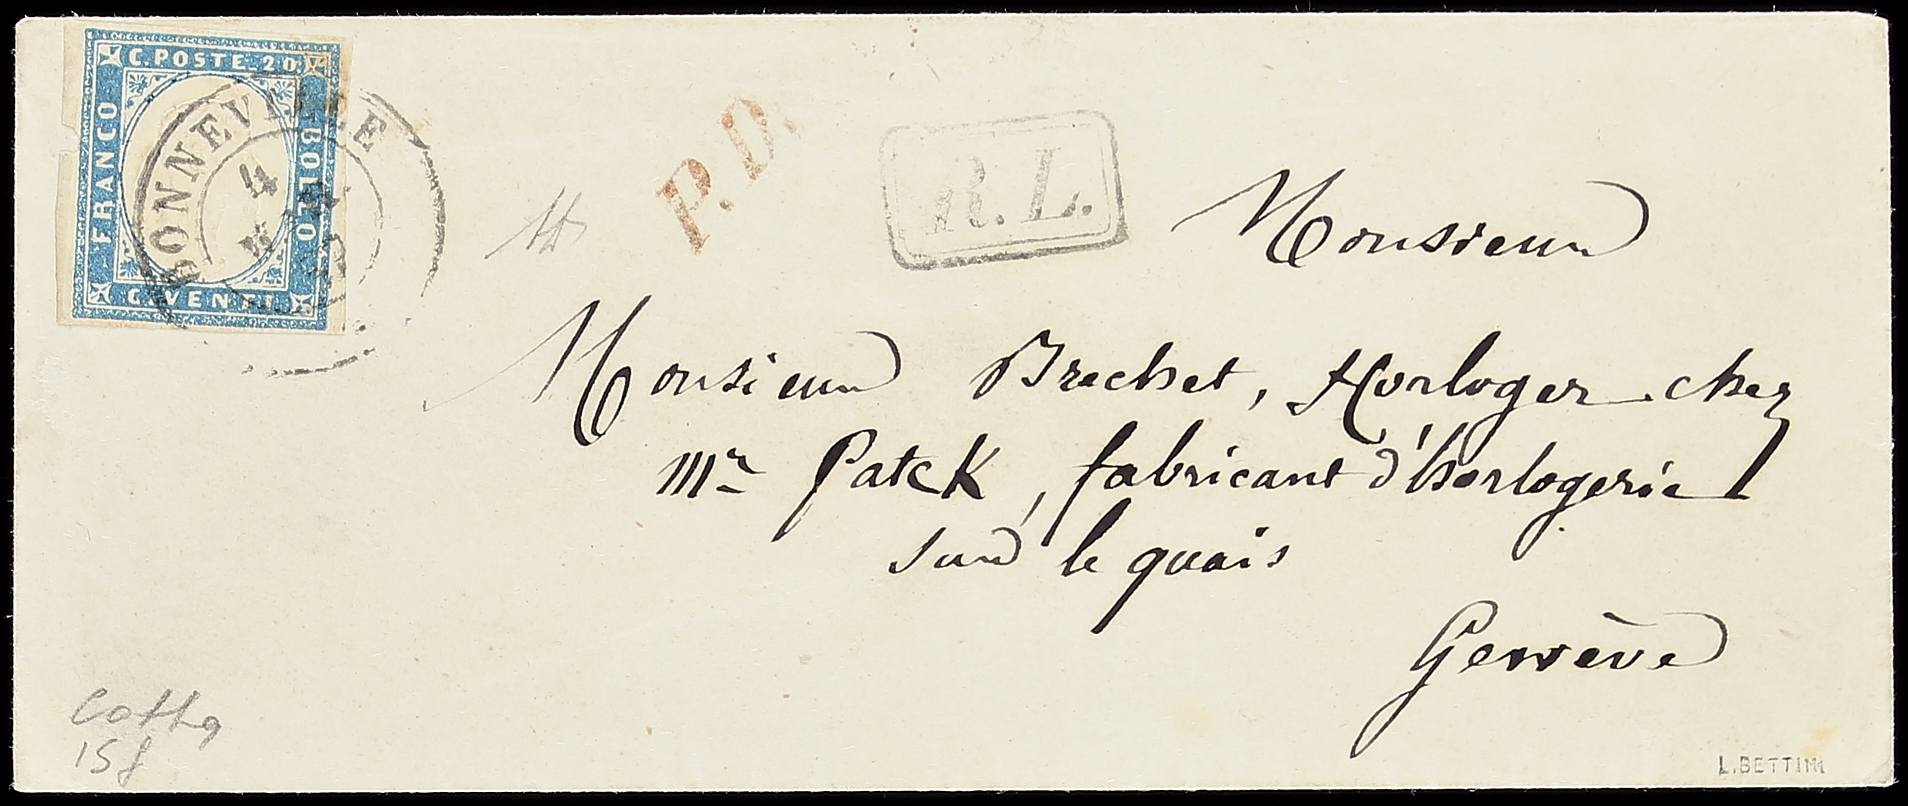 C. POSTE 20
FRANCO
BOLLO
C. VENTI
BONNEVILLE
4
P.D.
R.L.
Monsieur
Monsieur Brechet, Horloger chez
Mr Patek, fabricant d'horlogerie
sur le quais
Genève
15f
L. BETTINI